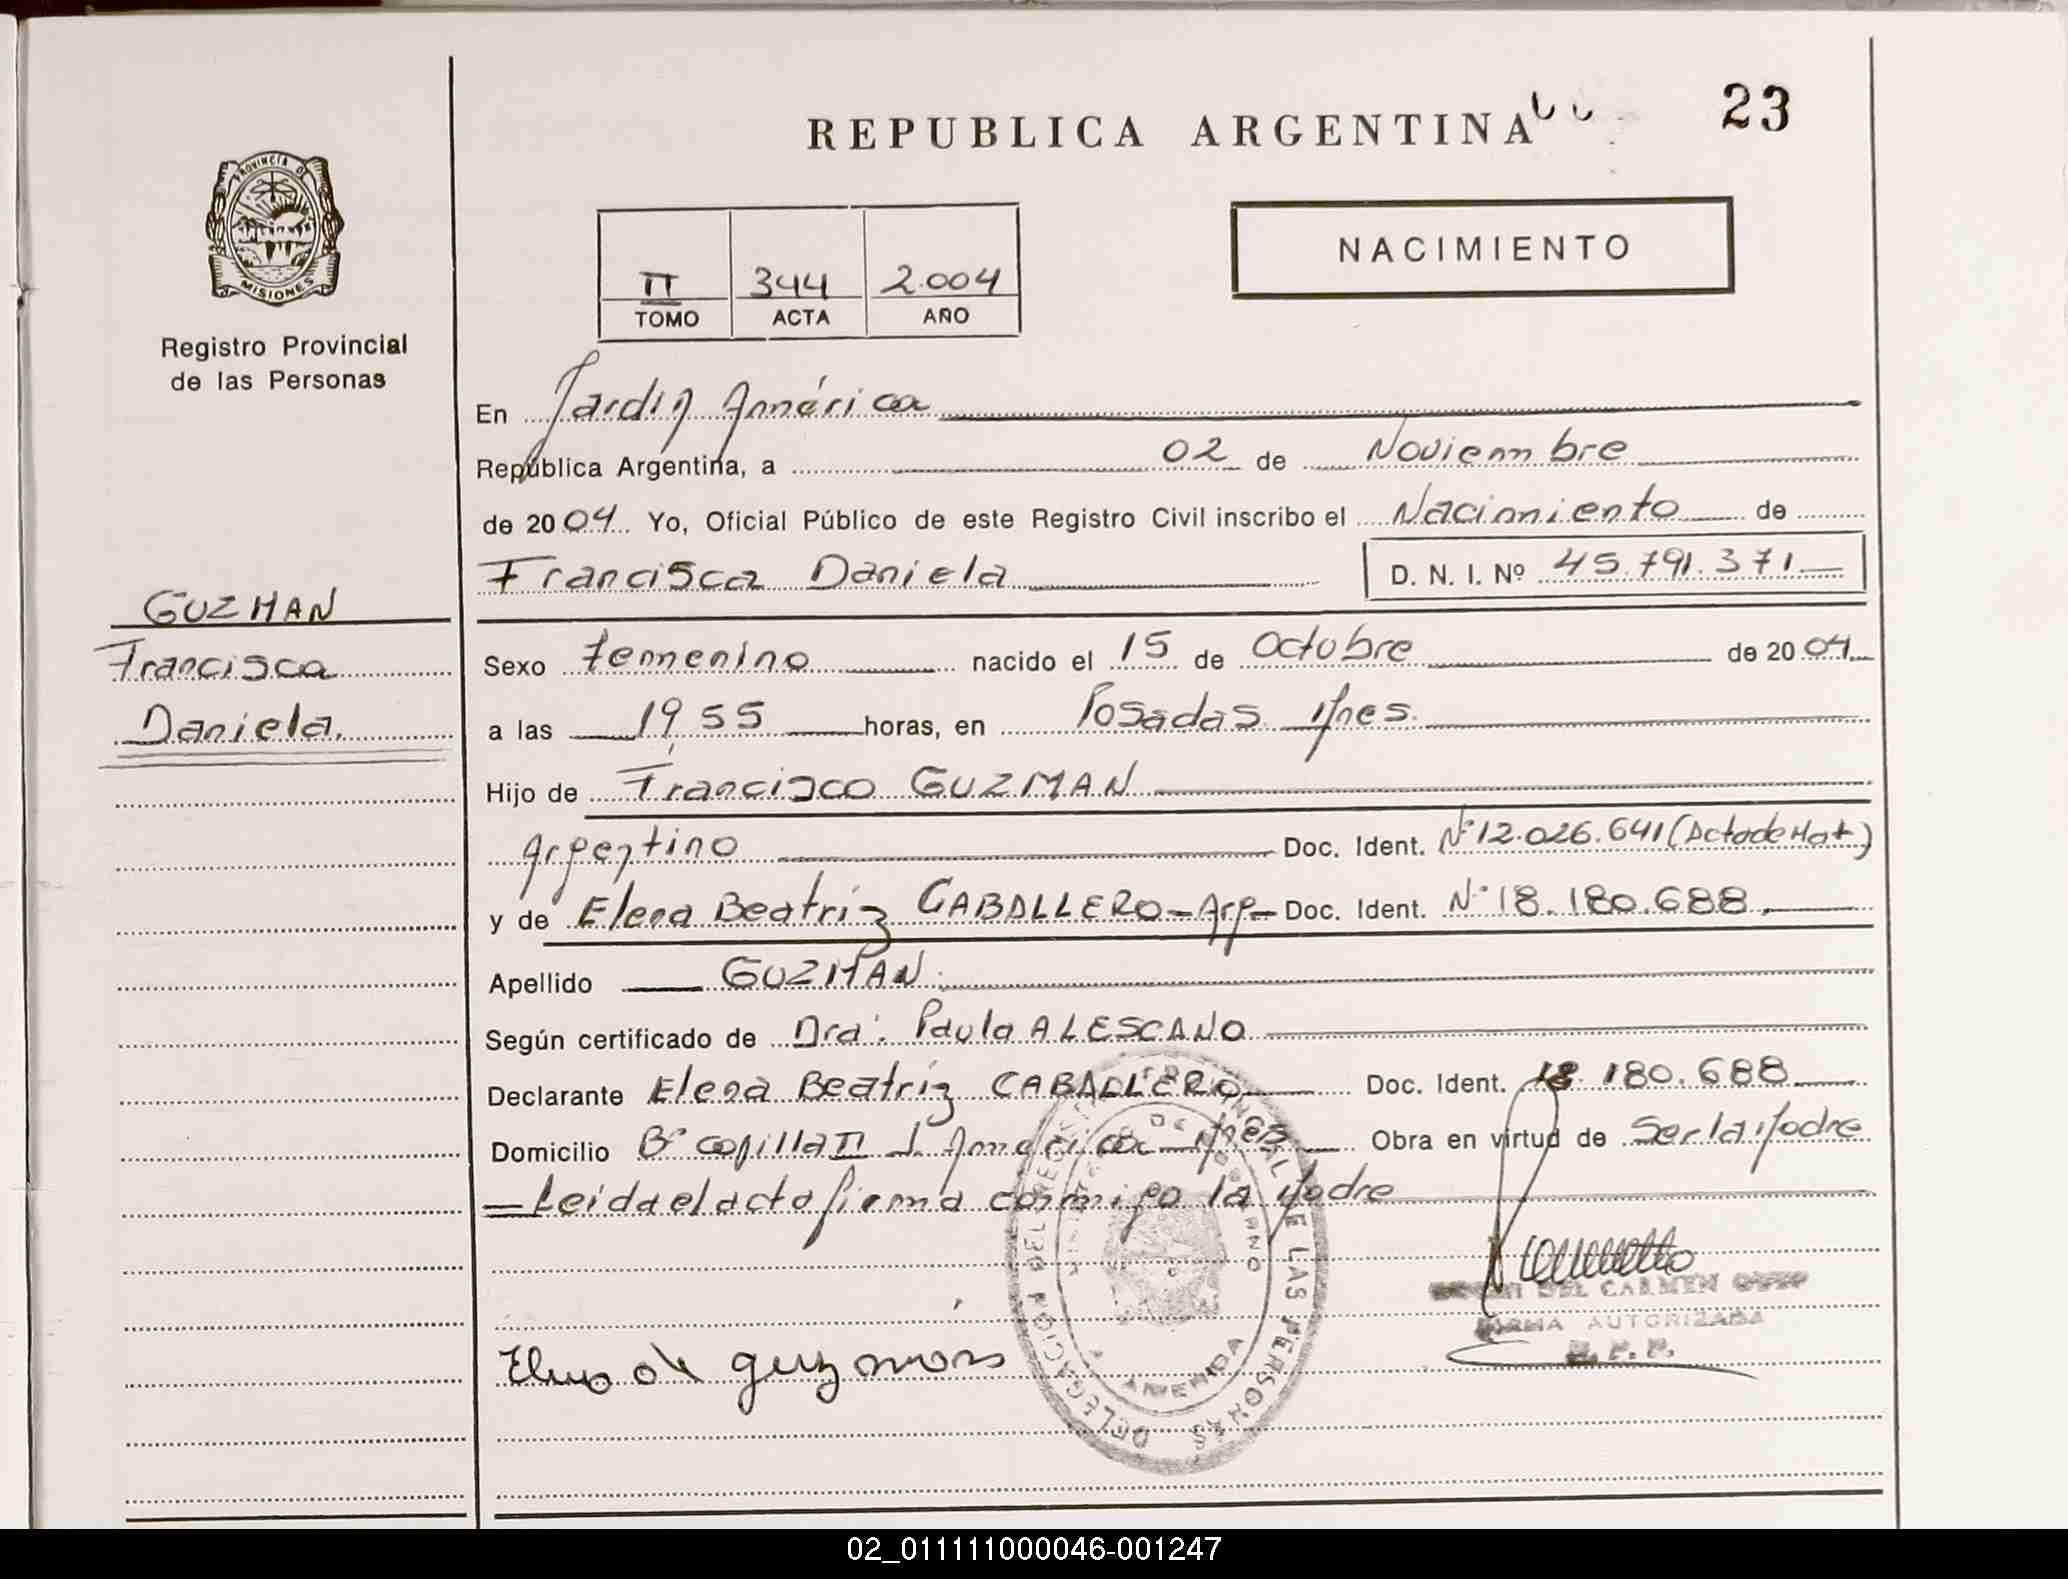 REPUBLICA ARGENTINA
23
PROVINCIA DE
MISIONES
Registro Provincial
de las Personas
NACIMIENTO
II 344 2.004
TOMO ACTA AÑO
GUZMAN
Francisca
Daniela.
En Jardín América
República Argentina, a 02 de Noviembre
de 2004 Yo, Oficial Público de este Registro Civil inscribo el Nacimiento de
Francisca Daniela D. N. I. Nº 45.791.371
Sexo femenino nacido el 15 de Octubre de 2004
a las 19,55 horas, en Posadas Mnes.
Hijo de Francisco GUZMAN
Argentino Doc. Ident. Nº 12.026.641 (Acta de Mat)
y de Elena Beatriz CABALLERO - Arg - Doc. Ident. Nº 18.180.688.
Apellido GUZMAN.
Según certificado de Dra. Paula ALESCANO
Declarante Elena Beatriz CABALLERO Doc. Ident. 18.180.688
Domicilio Bº Capilla II J. América - Mnes Obra en virtud de Ser la Madre
- Leida el acta firma conmigo la Madre
DEL CARMEN
FIRMA AUTORIZADA
R. P. P.
de guzman
DELEGACION DEL REGISTRO PROVINCIAL DE LAS PERSONAS
MINISTERIO DE GOBIERNO
AMERICA
02_011111000046-001247